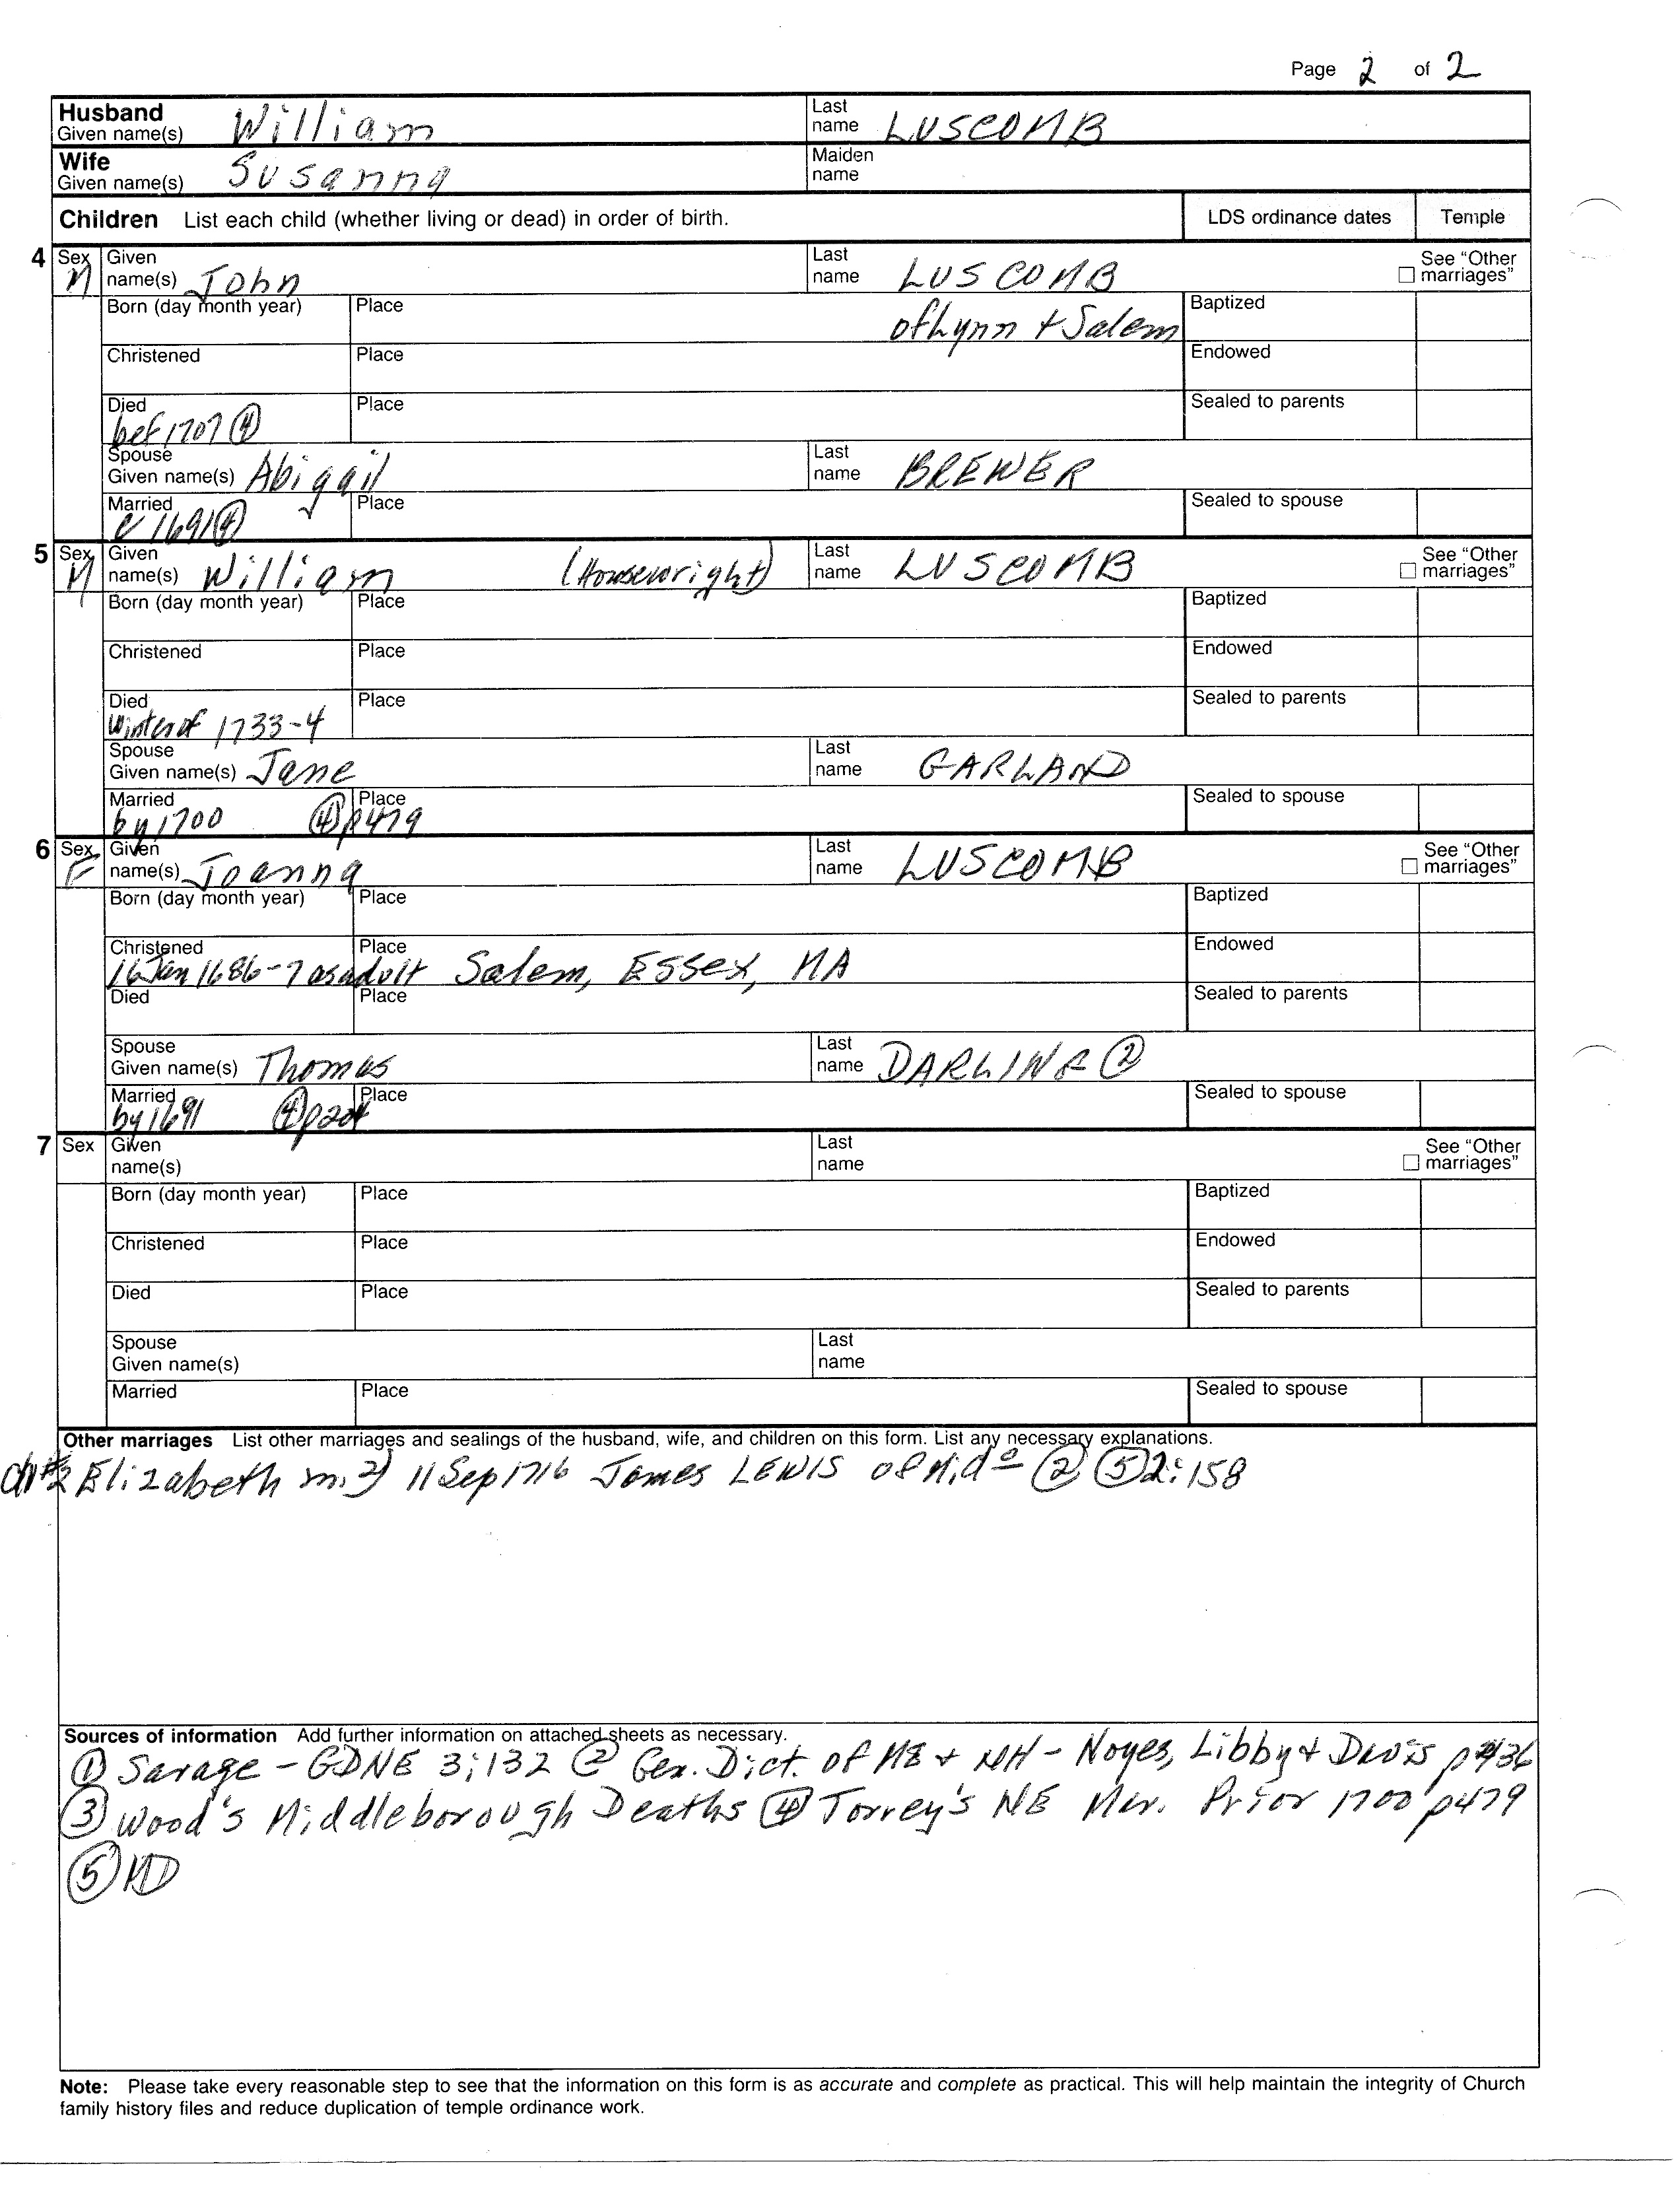 Page 2 of 2
Husband Given name(s) William Last name LUSCOMB
Wife Given name(s) Susanna Maiden name
Children List each child (whether living or dead) in order of birth. LDS ordinance dates Temple
4 Sex M Given name(s) John Last name LUSCOMB See "Other marriages"
Born (day month year) Place of Lynn + Salem Baptized
Christened Place Endowed
Died bef 1707 ④ Place Sealed to parents
Spouse Given name(s) Abigail Last name BREWER
Married c 1691 ④ Place Sealed to spouse
5 Sex M Given name(s) William (Housewright) Last name LUSCOMB See "Other marriages"
Born (day month year) Place Baptized
Christened Place Endowed
Died Winter of 1733-4 Place Sealed to parents
Spouse Given name(s) Jane Last name GARLAND
Married by 1700 ④ p479 Place Sealed to spouse
6 Sex F Given name(s) Joanna Last name LUSCOMB See "Other marriages"
Born (day month year) Place Baptized
Christened 16 Jan 1686-7 as adult Place Salem, Essex, MA Endowed
Died Place Sealed to parents
Spouse Given name(s) Thomas Last name DARLING ②
Married by 1691 ④ Place Sealed to spouse
7 Sex Given name(s) Last name See "Other marriages"
Born (day month year) Place Baptized
Christened Place Endowed
Died Place Sealed to parents
Spouse Given name(s) Last name
Married Place Sealed to spouse
Other marriages List other marriages and sealings of the husband, wife, and children on this form. List any necessary explanations.
ch#2 Elizabeth m. 2) 11 Sep 1716 James LEWIS of Mido ② ⑤ 2:158
Sources of information Add further information on attached sheets as necessary.
① Savage - GDNE 3:132 ② Gen. Dict. of ME + NH - Noyes, Libby + Davis p436
③ Wood's Middleborough Deaths ④ Torrey's NE Mar. Prior 1700 p479
⑤ MD
Note: Please take every reasonable step to see that the information on this form is as accurate and complete as practical. This will help maintain the integrity of Church
family history files and reduce duplication of temple ordinance work.